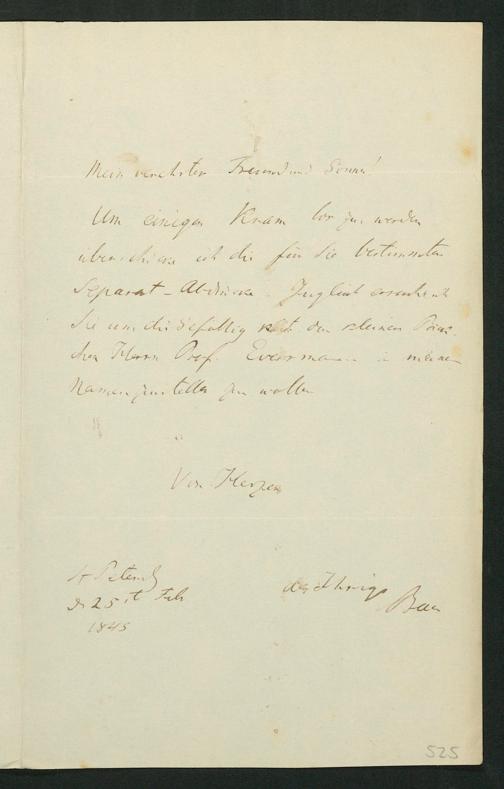 Mein verehrter Freund und Gönner!
Um einigen Kram los zu werden
überschicke ich die für Sie bestimmten
Separat-Abdrücke. Zugleich ersuche ich
Sie um die Gefälligkeit den kleinen
chen Herrn Prof. Eversmann in meinem
Namen zustellen zu wollen
Von Herzen
der Ihrige
Baer
St Petersb
d. 25st Feb
1845
525